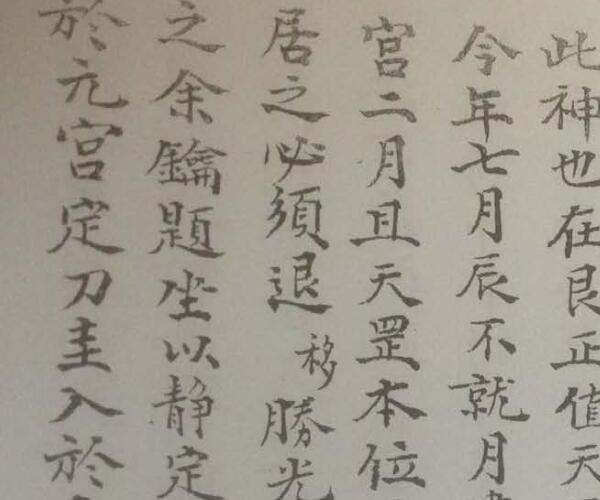 此神也在艮正值天
今年七月辰不就月
宫二月且天罡本位
居之必須退移勝光
之余鑰題坐以静定
於元宫定刀圭入於